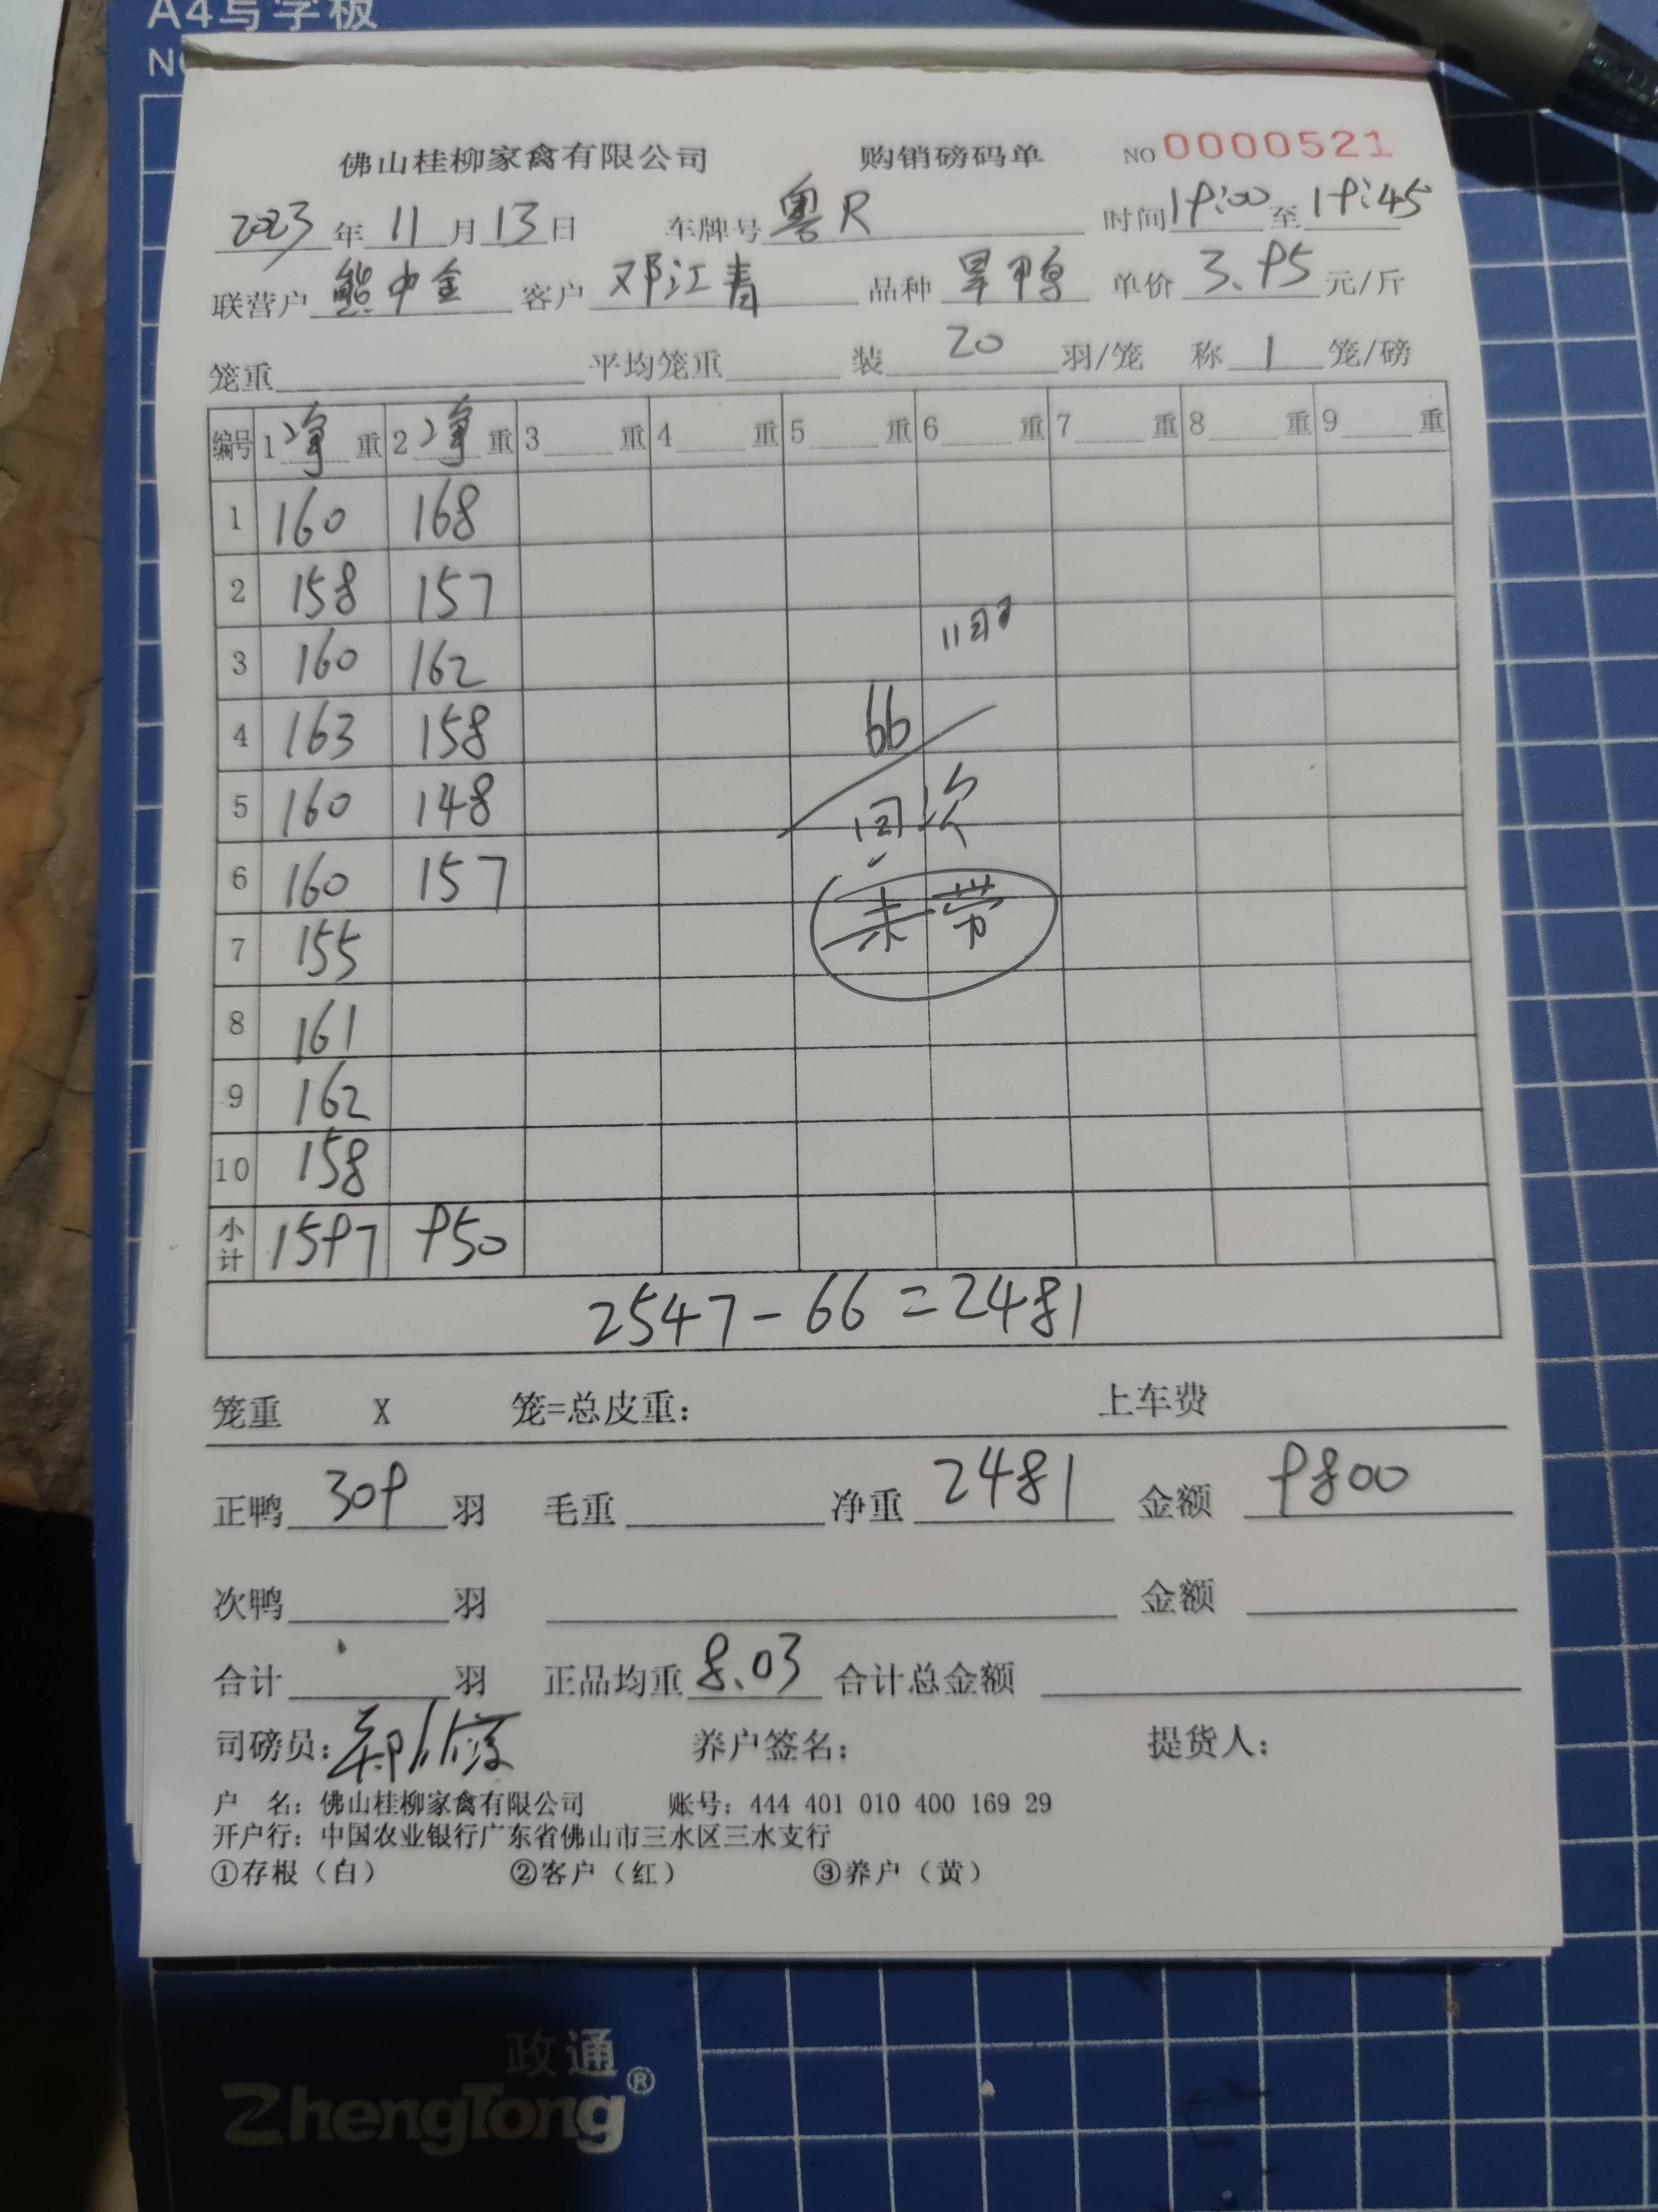 A4写字板
佛山桂柳家禽有限公司 购销磅码单 NO 0000521
2023年11月13日 车牌号 粤R 时间 19:00 至 19:45
联营户 熊中金 客户 邓江青 品种 旱鸭 单价 3.95 元/斤
笼重 平均笼重 装 20 羽/笼 称 1 笼/磅
编号 1 净 重 2 净 重 3 重 4 重 5 重 6 重 7 重 8 重 9 重
1 160 168
2 158 157
3 160 162
4 163 158
66
5 160 148
6 160 157
未带
7 155
8 161
9 162
10 158
小计 1597 950
2547-66=2481
笼重 X 笼=总皮重: 上车费
正鸭 309 羽 毛重 净重 2481 金额 9800
次鸭 羽 金额
合计 羽 正品均重 8.03 合计总金额
司磅员: 养户签名: 提货人:
户 名: 佛山桂柳家禽有限公司 账号: 444 401 010 400 169 29
开户行: 中国农业银行广东省佛山市三水区三水支行
①存根（白） ②客户（红） ③养户（黄）
政通
ZhengTong®